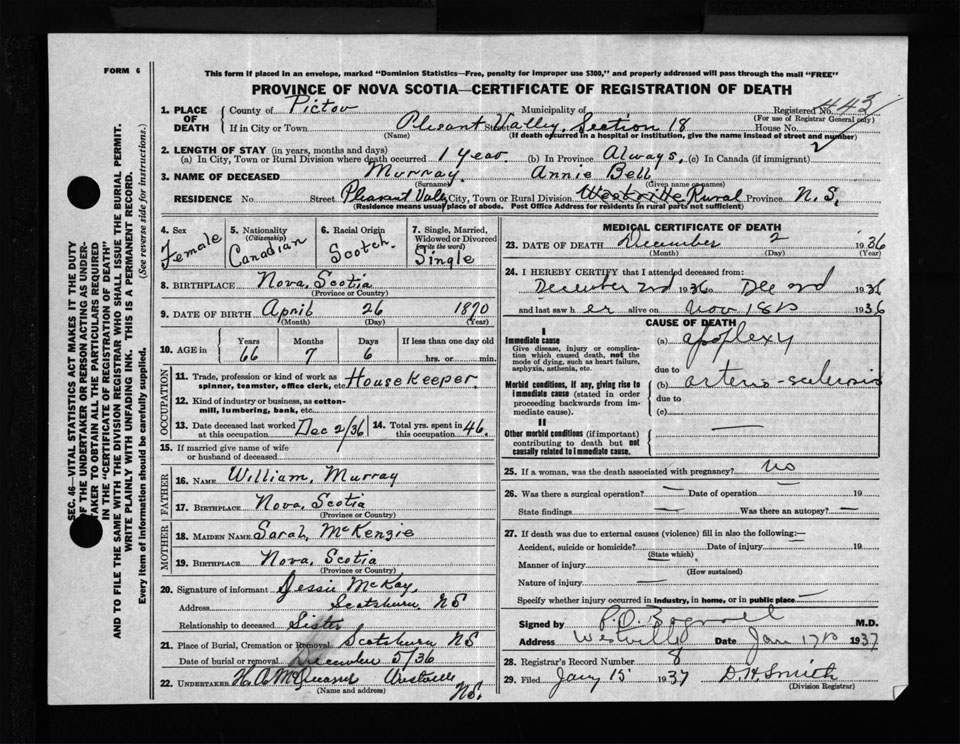 FORM 6
This form if placed in an envelope, marked "Dominion Statistics—Free, penalty for improper use $300," and properly addressed will pass through the mail "FREE"
PROVINCE OF NOVA SCOTIA—CERTIFICATE OF REGISTRATION OF DEATH
SEC. 46—VITAL STATISTICS ACT MAKES IT THE DUTY
OF THE UNDERTAKER OR PERSON ACTING AS UNDER-
TAKER TO OBTAIN ALL THE PARTICULARS REQUIRED
IN THE "CERTIFICATE OF REGISTRATION OF DEATH"
AND TO FILE THE SAME WITH THE DIVISION REGISTRAR WHO SHALL ISSUE THE BURIAL PERMIT.
WRITE PLAINLY WITH UNFADING INK. THIS IS A PERMANENT RECORD.
Every item of information should be carefully supplied. (See reverse side for instructions.)
1. PLACE OF DEATH County of Pictou Municipality of Registered No. 443
(For use of Registrar General only)
If in City or Town Plesant Vally, Section 18 Street House No.
(Name) (If death occurred in a hospital or institution, give the name instead of street and number)
2
2. LENGTH OF STAY (in years, months and days)
(a) In City, Town or Rural Division where death occurred 1 Year. (b) In Province Always, (c) In Canada (if immigrant)
3. NAME OF DECEASED Murray. Annie Bell
(Surname) (Given name or names)
RESIDENCE No. Street Plesant Valy City, Town or Rural Division Westville Rural Province N.S.
(Residence means usual place of abode. Post Office Address for residents in rural parts not sufficient)
4. Sex Female
5. Nationality (Citizenship) Canadian
6. Racial Origin Scotch.
7. Single, Married, Widowed or Divorced (write the word) Single
8. BIRTHPLACE Nova, Scotia
(Province or Country)
9. DATE OF BIRTH April 26 1870
(Month) (Day) (Year)
10. AGE in Years 66 Months 7 Days 6 If less than one day old hrs. or min.
OCCUPATION
11. Trade, profession or kind of work as spinner, teamster, office clerk, etc. House Keeper,
12. Kind of industry or business, as cotton-mill, lumbering, bank, etc.
13. Date deceased last worked at this occupation Dec 2/36
14. Total yrs. spent in this occupation 46.
15. If married give name of wife or husband of deceased
FATHER
16. NAME William, Murray
17. BIRTHPLACE Nova, Scotia
(Province or Country)
MOTHER
18. MAIDEN NAME Sarah, McKenzie
19. BIRTHPLACE Nova, Scotia
(Province or Country)
20. Signature of informant Jessie McKay,
Address Scotsburn, NS
Relationship to deceased Sister
21. Place of Burial, Cremation or Removal Scotsburn NS
Date of burial or removal December 5/36
22. UNDERTAKER H. A. Westville NS.
(Name and address)
MEDICAL CERTIFICATE OF DEATH
23. DATE OF DEATH December 2 1936
(Month) (Day) (Year)
24. I HEREBY CERTIFY that I attended deceased from:
December 2nd 1936 to Dec 2nd 1936
and last saw her alive on Nov 18th 1936
CAUSE OF DEATH
I
Immediate cause
Give disease, injury or complication which caused death, not the mode of dying, such as heart failure, asphyxia, asthenia, etc.
(a) apoplexy
due to
Morbid conditions, if any, giving rise to immediate cause (stated in order proceeding backwards from immediate cause).
(b) arterio-sclerosis
due to
(c)
II
Other morbid conditions (if important) contributing to death but not causally related to immediate cause.
25. If a woman, was the death associated with pregnancy? No
26. Was there a surgical operation? — Date of operation — 19
State findings — Was there an autopsy? —
27. If death was due to external causes (violence) fill in also the following:—
Accident, suicide or homicide? Date of injury 19
(State which)
Manner of injury —
(How sustained)
Nature of injury —
Specify whether injury occurred in industry, in home, or in public place —
Signed by M.D.
Address Westville Date Jan 17th 1937
28. Registrar's Record Number 8
29. Filed Jany 15 1937 D. H. Smith
(Division Registrar)